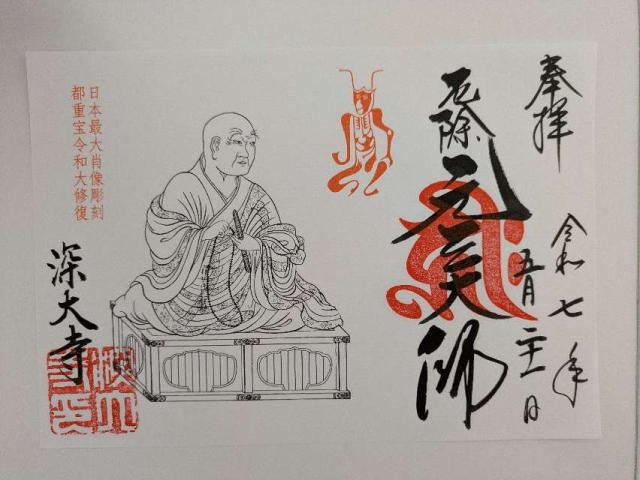 奉拝
令和七年
五月二十一日
厄除
元三大師
日本最大肖像彫刻
都重宝令和大修復
深大寺